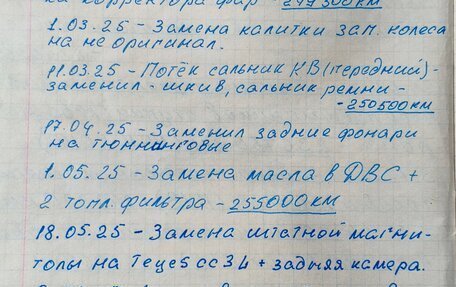 ка корректора фар - 249300км
1.03.25 - Замена калитки зап. колеса
на не оригинал.
11.03.25 - Потёк сальник КВ (передний) -
заменил - шкив, сальник ремни -
- 250500км
17.04.25 - Заменил задние фонари
на тюнинговые
1.05.25 - Замена масла в ДВС +
2 топл. фильтра - 255000км
18.05.25 - Замена штатной магни-
толы на Teyes cc3 4 + задняя камера.